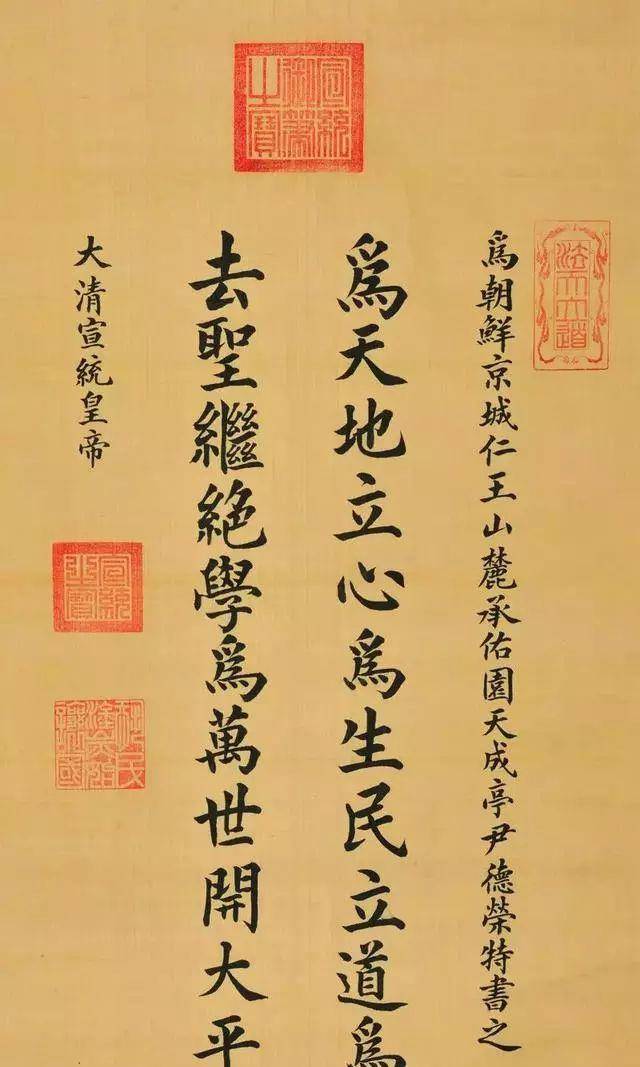 宣統御筆之寶
為朝鮮京城仁王山麓承佑園天成亭尹德榮特書之
為天地立心為生民立道為
去聖繼絕學為萬世開大平
大清宣統皇帝
宣統之寶